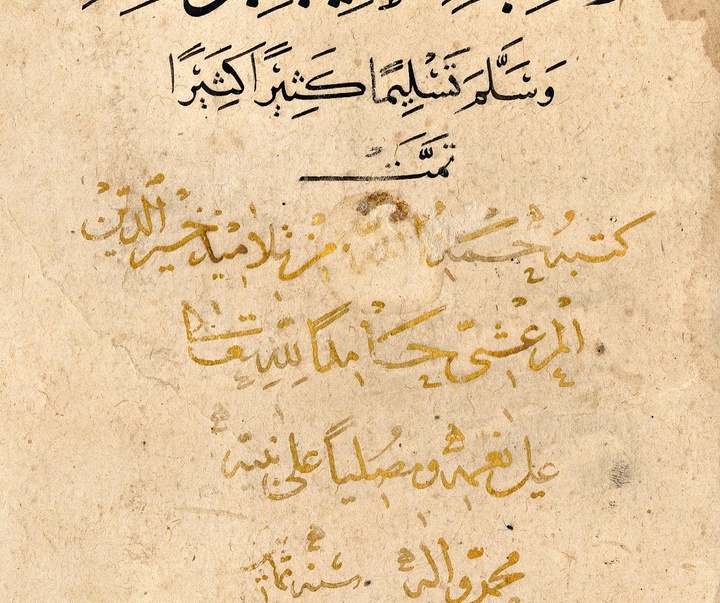 وَسَلَّمَ تَسْلِيمًا كَثِيرًا كَثِيرًا
تمَّت
كتبه حمد الله من تلاميذ خير الدين
المرعشى حامدًا لله تعا
على نعمه ومصليًا على نبيّه
محمّد واله سنه ثمان